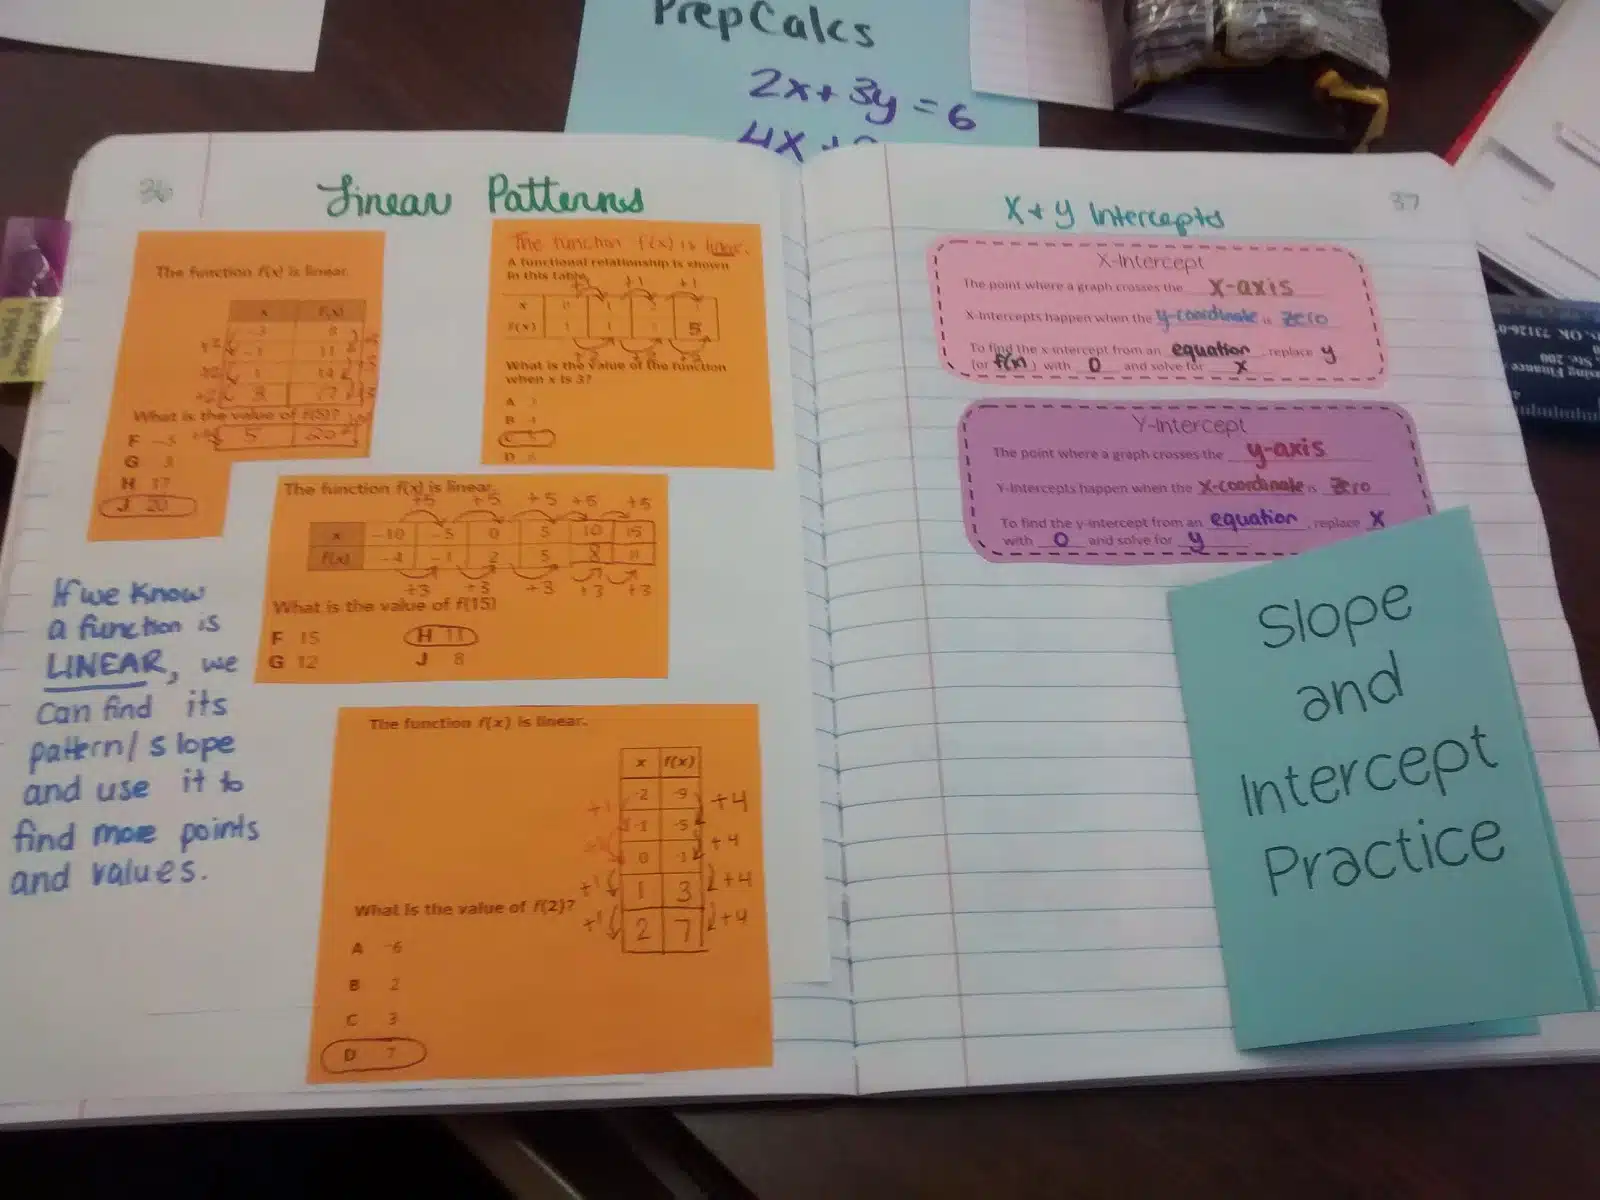 PrepCalcs
2x + 3y = 6
4x +
36
Linear Patterns
The function f(x) is linear.
x f(x)
-3 8
-1 11
1 14
3 17
What is the value of f(5)?
5 20
F -5
G 3
H 17
J 20
The function f(x) is linear.
A functional relationship is shown
in this table.
+1 +1
x
f(x) 5
What is the value of the function
when x is 3?
A
B
C
D
The function f(x) is linear.
+5 +5 +5 +5 +5
x -10 -5 0 5 10 15
f(x) -4 -1 2 5 8 11
+3 +3 +3 +3 +3
What is the value of f(15)
F 15 H 11
G 12 J 8
If we know
a function is
LINEAR, we
can find its
pattern/slope
and use it to
find more points
and values.
The function f(x) is linear.
x f(x)
-2 -9
-1 -5
0 -1
1 3
2 7
+1 +4
+4
+1 +4
+1 +4
What is the value of f(2)?
A -6
B 2
C 3
D 7
37
X + y Intercepts
X-Intercept
The point where a graph crosses the x-axis
X-Intercepts happen when the y-coordinate is zero
To find the x-intercept from an equation, replace y
(or f(x)) with 0 and solve for x
Y-Intercept
The point where a graph crosses the y-axis
Y-Intercepts happen when the x-coordinate is zero
To find the y-intercept from an equation, replace x
with 0 and solve for y
Slope
and
Intercept
Practice